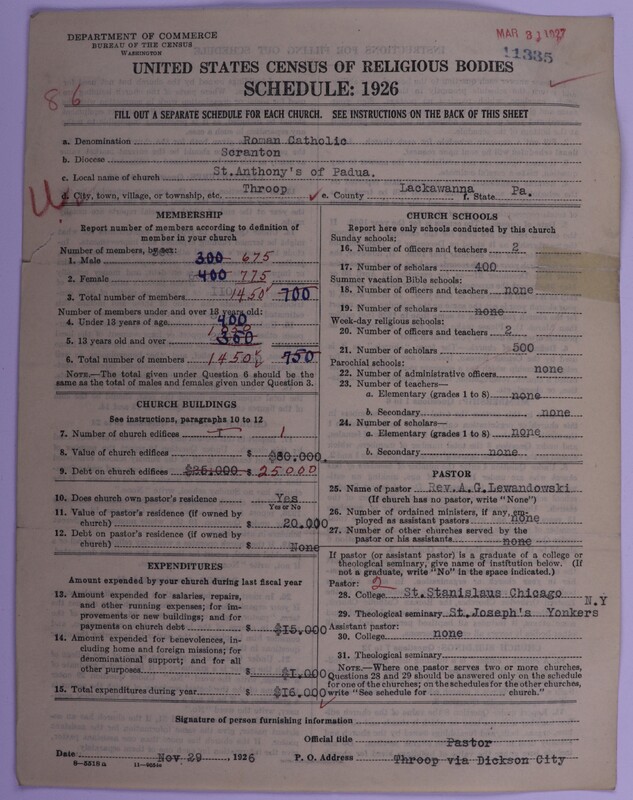 DEPARTMENT OF COMMERCE
BUREAU OF THE CENSUS
WASHINGTON
MAR 31 1927
11335
UNITED STATES CENSUS OF RELIGIOUS BODIES
SCHEDULE: 1926
86
FILL OUT A SEPARATE SCHEDULE FOR EACH CHURCH. SEE INSTRUCTIONS ON THE BACK OF THIS SHEET
a. Denomination Roman Catholic
b. Diocese Scranton
c. Local name of church St.Anthony's of Padua.
d. City, town, village, or township, etc. Throop e. County Lackawanna f. State Pa.
MEMBERSHIP
Report number of members according to definition of
member in your church
Number of members, by sex:
1. Male 300 675
2. Female 400 775
3. Total number of members 1450 700
Number of members under and over 13 years old:
4. Under 13 years of age 400
5. 13 years old and over 1050 350
6. Total number of members 1450 750
NOTE.—The total given under Question 6 should be the
same as the total of males and females given under Question 3.
CHURCH BUILDINGS
See instructions, paragraphs 10 to 12
7. Number of church edifices 1
8. Value of church edifices $ $80,000.
9. Debt on church edifices $25,000 $ 25000
10. Does church own pastor's residence Yes
Yes or No
11. Value of pastor's residence (if owned by
church) $ 20.000
12. Debt on pastor's residence (if owned by
church) $ None
EXPENDITURES
Amount expended by your church during last fiscal year
13. Amount expended for salaries, repairs,
and other running expenses; for im-
provements or new buildings; and for
payments on church debt $ $15,000
14. Amount expended for benevolences, in-
cluding home and foreign missions; for
denominational support; and for all
other purposes $ $1,000
15. Total expenditures during year $ $16,000
CHURCH SCHOOLS
Report here only schools conducted by this church
Sunday schools:
16. Number of officers and teachers 2
17. Number of scholars 400
Summer vacation Bible schools:
18. Number of officers and teachers none
19. Number of scholars none
Week-day religious schools:
20. Number of officers and teachers 2
21. Number of scholars 500
Parochial schools:
22. Number of administrative officers none
23. Number of teachers—
a. Elementary (grades 1 to 8) none
b. Secondary none
24. Number of scholars—
a. Elementary (grades 1 to 8) none
b. Secondary none
PASTOR
25. Name of pastor Rev.A.G.Lewandowski
(If church has no pastor, write "None")
26. Number of ordained ministers, if any, em-
ployed as assistant pastors none
27. Number of other churches served by the
pastor or his assistants none
If pastor (or assistant pastor) is a graduate of a college or
theological seminary, give name of institution below. (If
not a graduate, write "No" in the space indicated.)
Pastor: 2
28. College St.Stanislaus Chicago
N.Y
29. Theological seminary St.Joseph's Yonkers
Assistant pastor:
30. College none
31. Theological seminary
NOTE.—Where one pastor serves two or more churches,
Questions 28 and 29 should be answered only on the schedule
for one of the churches; on the schedules for the other churches,
write "See schedule for church."
Signature of person furnishing information
Official title Pastor
Date Nov 29, 1926 P. O. Address Throop via Dickson City
8—5318a